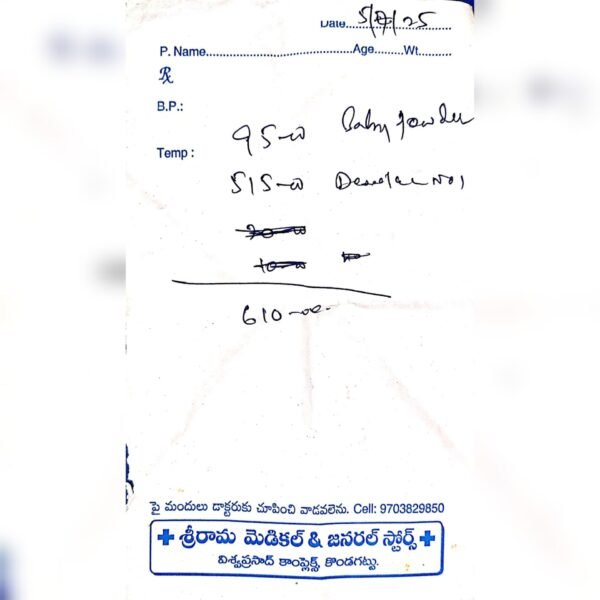 Date....5/8/25
P. Name..........................................Age.........Wt..........
℞
B.P.:
95-00 Baby Powder
Temp :
515-00 No 1
10-00
610-00
పై మందులు డాక్టరుకు చూపించి వాడవలెను. Cell: 9703829850
శ్రీరామ మెడికల్ & జనరల్ స్టోర్స్
విశ్వప్రసాద్ కాంప్లెక్స్, కొండగట్టు.